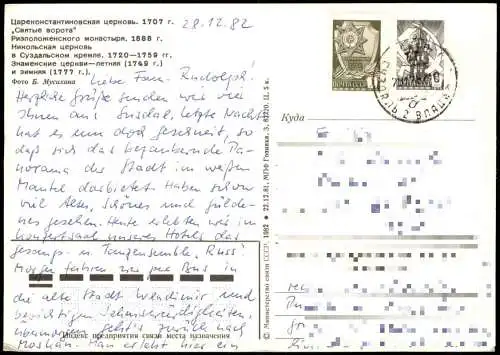 Цареконстантиновская церковь. 1707 г.
„Святые ворота"
Ризположенского монастыря. 1688 г.
Никольская церковь
в Суздальском кремле. 1720—1739 гг.
Знаменские церкви—летняя (1749 г.)
и зимняя (1777 г.)
Фото Б. Мусихина
28.12.82
Liebe Fam. Rudolph!
Herzliche Grüße senden wir
Ihnen aus Susdal, letzte Nacht
hat es nun doch geschneit, so
daß sich das bezaubernde Pa-
norama der Stadt im weißen
Mantel darbietet. Haben schon
viel Altes, Schönes und Golde-
nes gesehen. Heute erlebten wir im
Konzertsaal unseres Hotels das
Gesangs- u. Tanzensemble „Russ".
Morgen fahren wir per Bus in
die alte Stadt Wladimir und
besichtigen Sehenswürdigkeiten,
übermorgen geht's zurück nach
Moskau. Man erlebt hier ein
Индекс предприятия связи места назначения
Куда
© Министерство связи СССР, 1982 ★ 22.12.81. МПФ Гознака. З. 83220. Ц. 5 к.